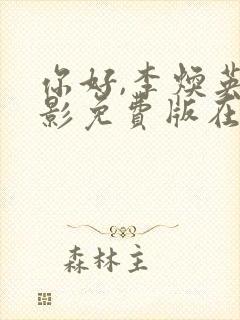 你好,李焕英
影免费版在
森林主